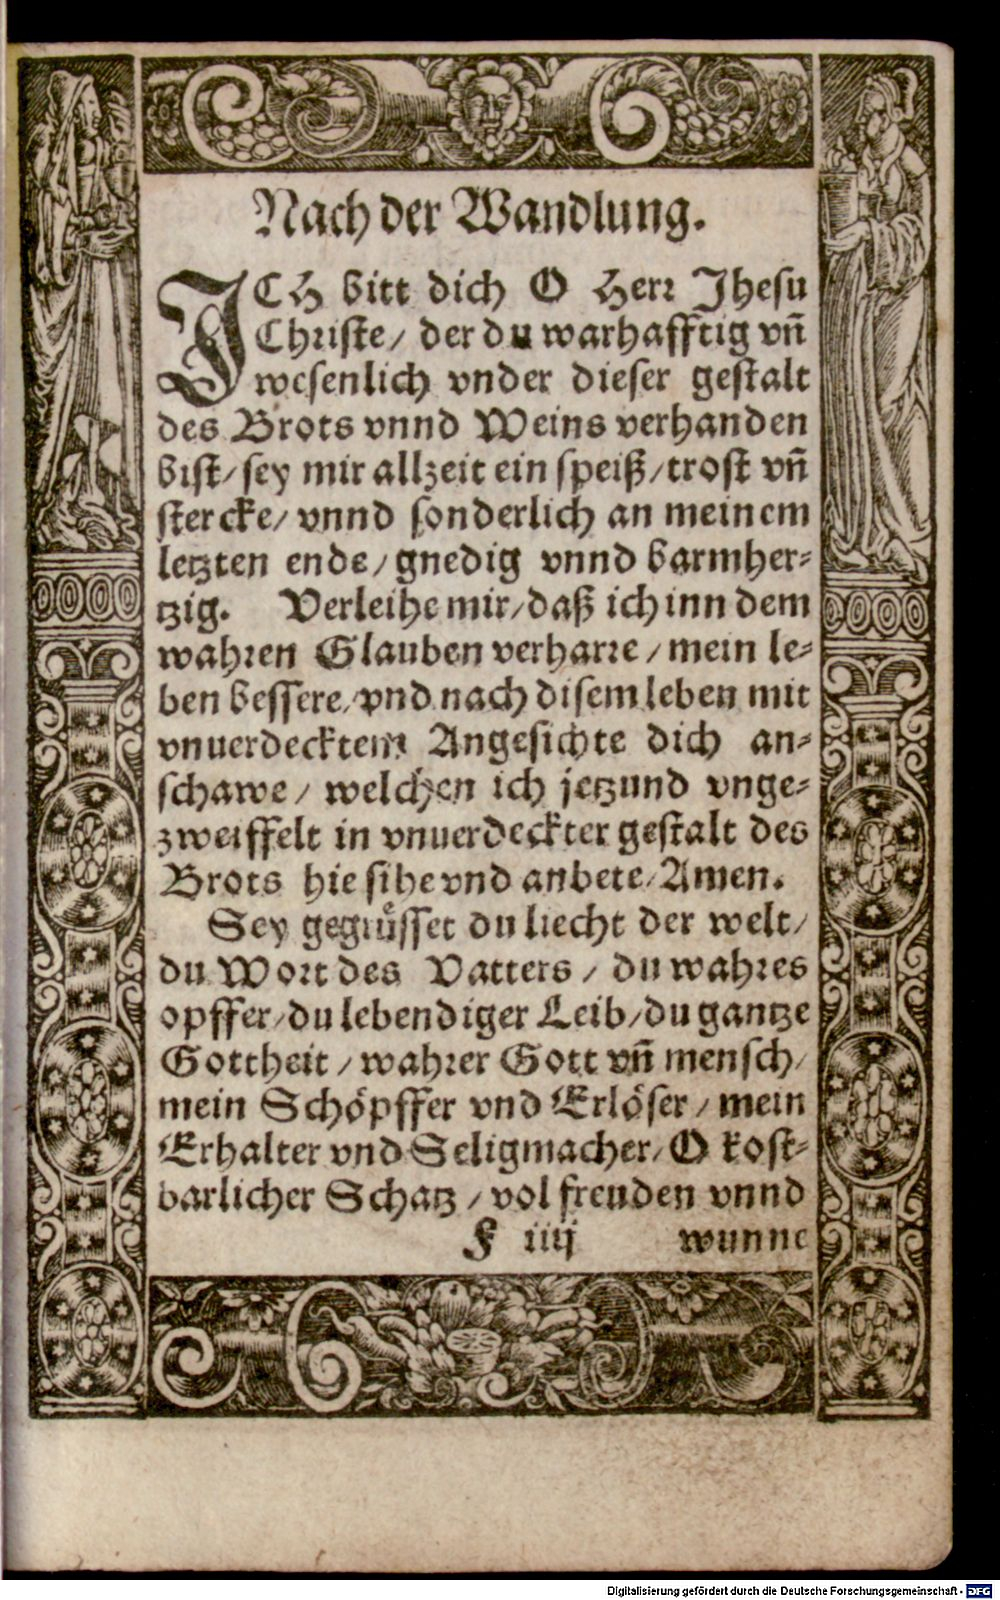 Nach der Wandlung.
ICH bitt dich O Herr Jhesu
Christe/ der du warhafftig vñ
wesenlich vnder dieser gestalt
des Brots vnnd Weins verhanden
bist/ sey mir allzeit ein speiß/ trost vñ
stercke/ vnnd sonderlich an meinem
letzten ende/ gnedig vnnd barmher-
tzig. Verleihe mir/ daß ich inn dem
wahren Glauben verharre/ mein le-
ben bessere/ vnd nach disem leben mit
vnuerdecktem Angesichte dich an-
schawe/ welchen ich jetzund vnge-
zweiffelt in vnuerdeckter gestalt des
Brots hie sihe vnd anbete/ Amen.
Sey gegrüsset du liecht der welt/
du Wort des Vatters/ du wahres
opffer/ du lebendiger Leib/ du gantze
Gottheit/ wahrer Gott vñ mensch/
mein Schöpffer vnd Erlöser/ mein
Erhalter vnd Seligmacher/ O kost-
barlicher Schatz/ vol freuden vnnd
F iiij wunne
Digitalisierung gefördert durch die Deutsche Forschungsgemeinschaft - DFG